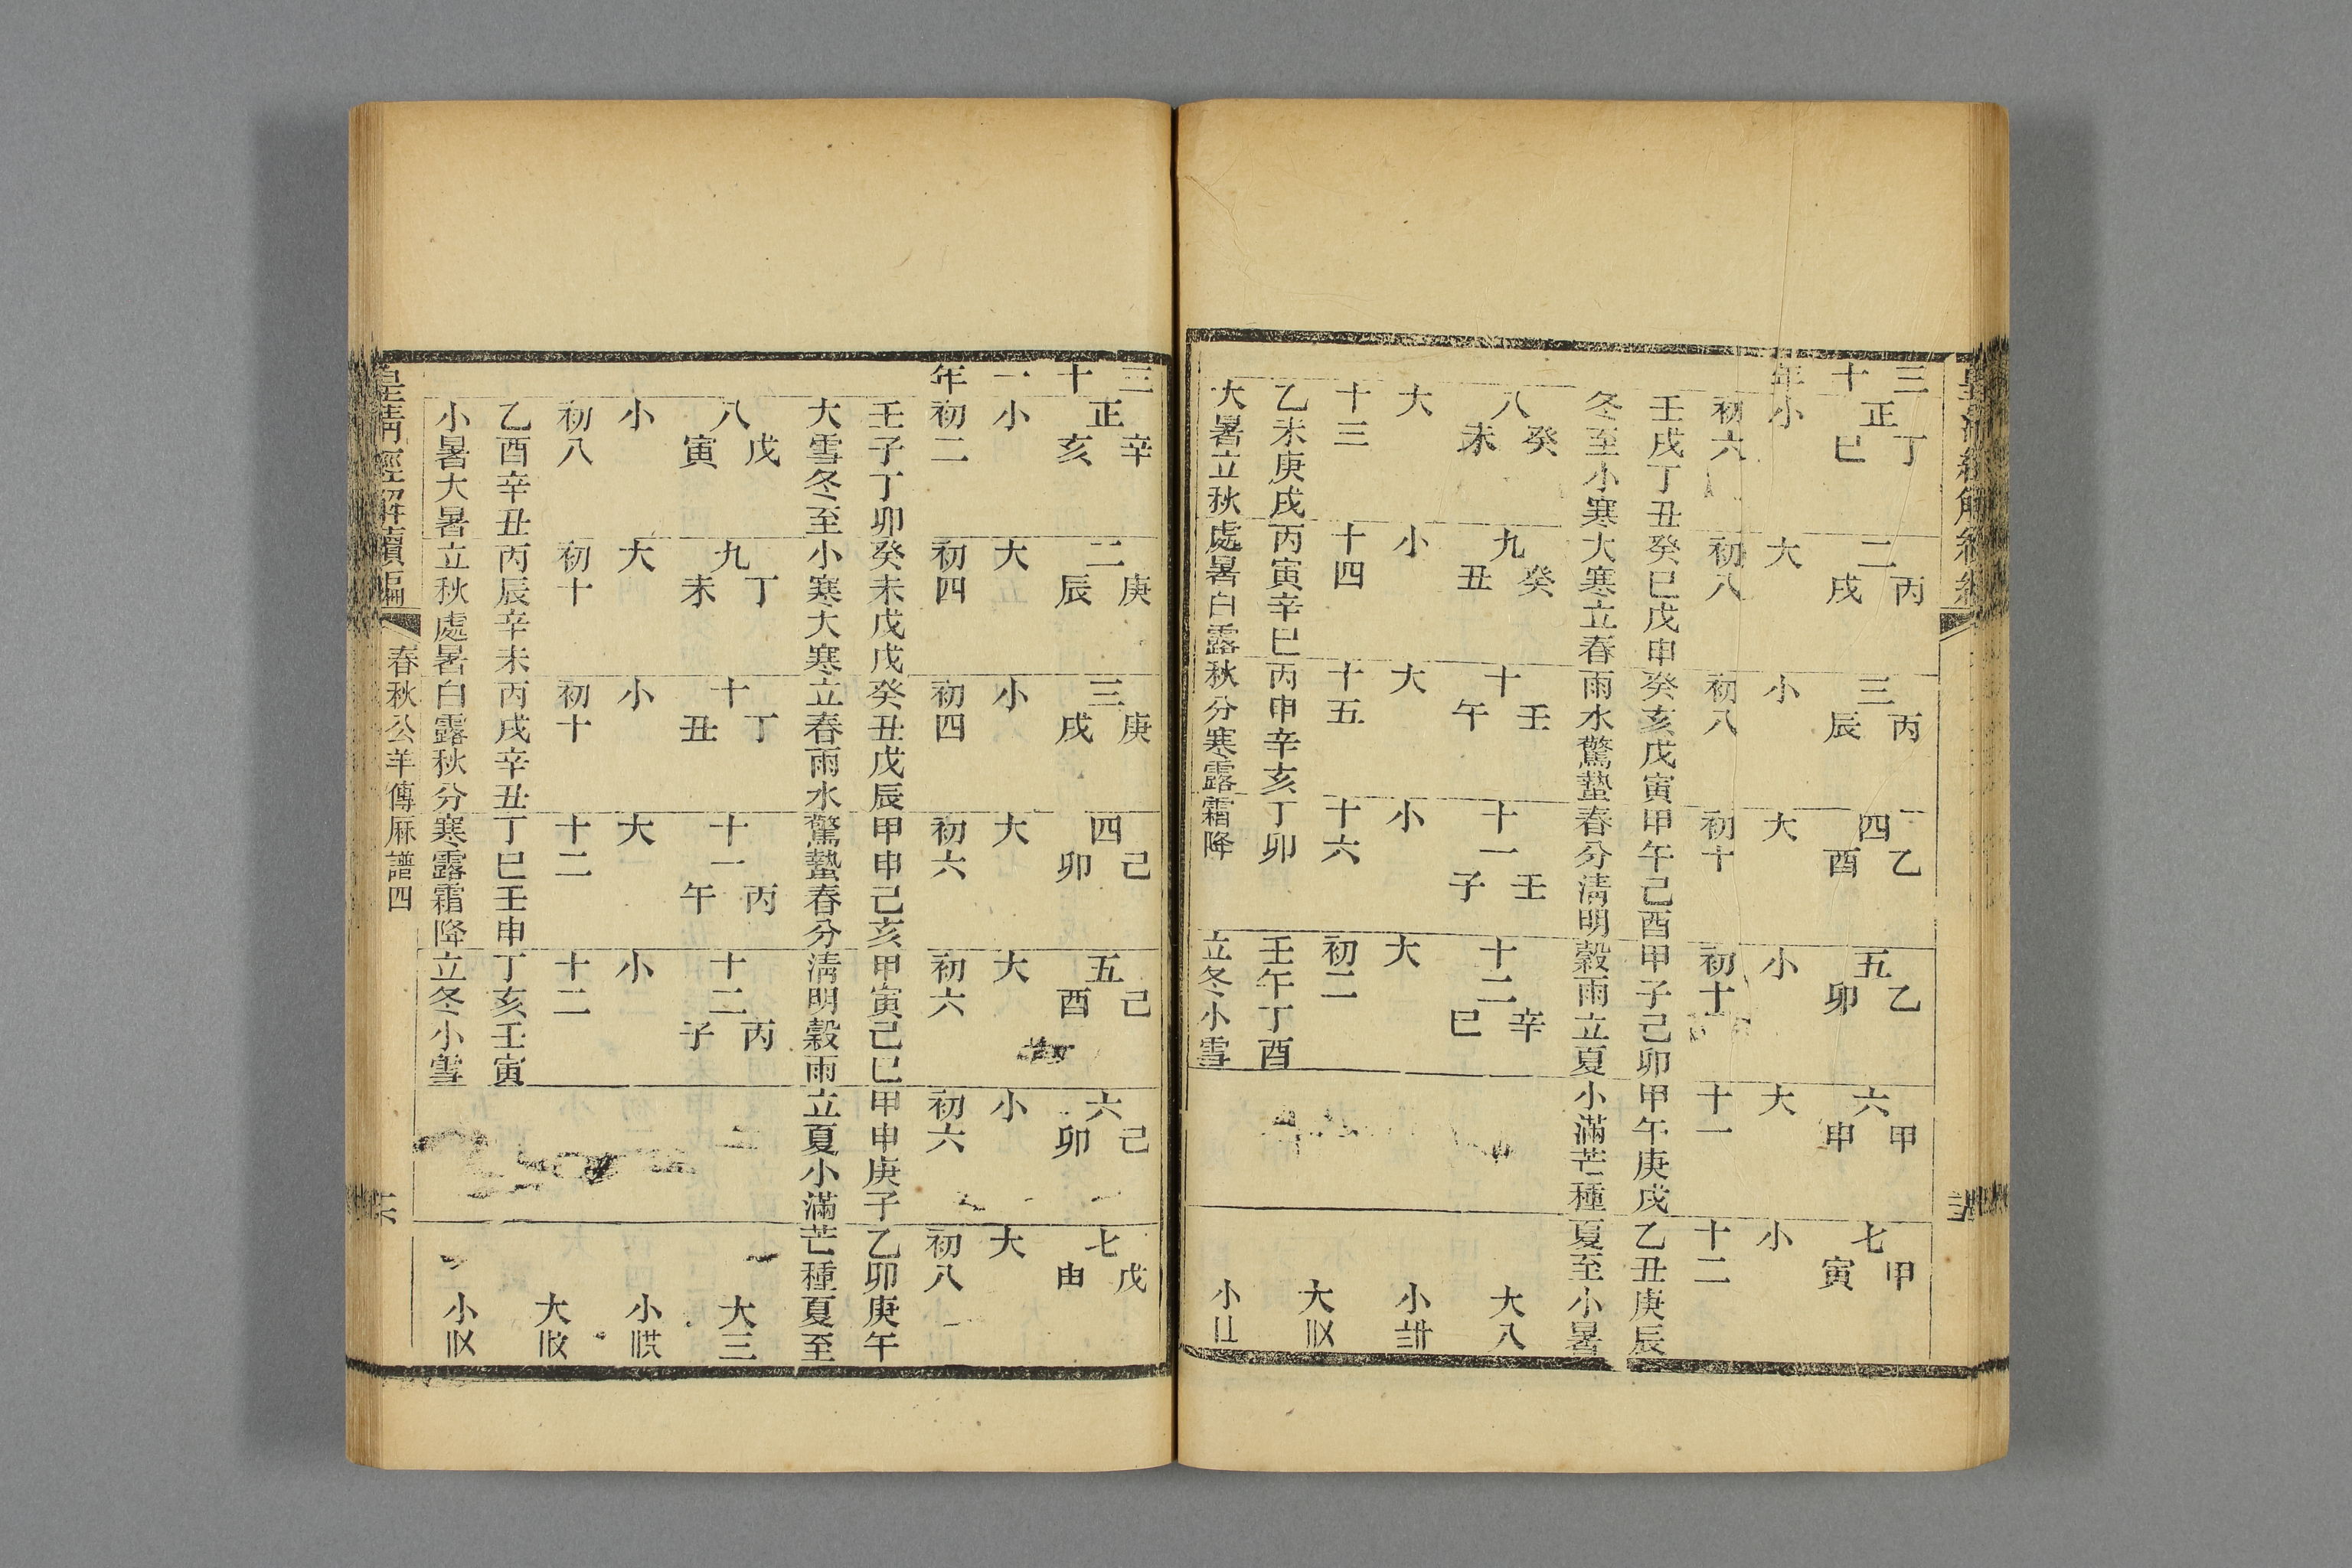 三十年
正 二 三 四 五 六 七
丁巳 丙戌 丙辰 乙酉 乙卯 甲申 甲寅
小 大 小 大 小 大 小
初六 初八 初八 初十 初十 十一 十二
壬戌丁丑癸巳戊申癸亥戊寅甲午己酉甲子己卯甲午庚戌乙丑庚辰
冬至小寒大寒立春雨水驚蟄春分淸明穀雨立夏小滿芒種夏至小暑
八 九 十 十一 十二
癸未 癸丑 壬午 壬子 辛巳
大八
大 小 大 小 大
小
十三 十四 十五 十六 初二
大
乙未庚戌丙寅辛巳丙申辛亥丁卯 壬午丁酉
大暑立秋處暑白露秋分寒露霜降 立冬小雪
小
三十一年
正 二 三 四 五 六 七
辛亥 庚辰 庚戌 己卯 己酉 己卯 戊由
小 大 小 大 大 小 大
初二 初四 初四 初六 初六 初六 初八
壬子丁卯癸未戊戌癸丑戊辰甲申己亥甲寅己巳甲申庚子乙卯庚午
大雪冬至小寒大寒立春雨水驚蟄春分淸明穀雨立夏小滿芒種夏至
八 九 十 十一 十二
戊寅 丁未 丁丑 丙午 丙子
大三
小 大 小 大 小
小
初八 初十 初十 十二 十二
大
乙酉辛丑丙辰辛未丙戌辛丑丁巳壬申丁亥壬寅
小暑大暑立秋處暑白露秋分寒露霜降立冬小雪
小
皇淸經解續編 春秋公羊傳厤譜四